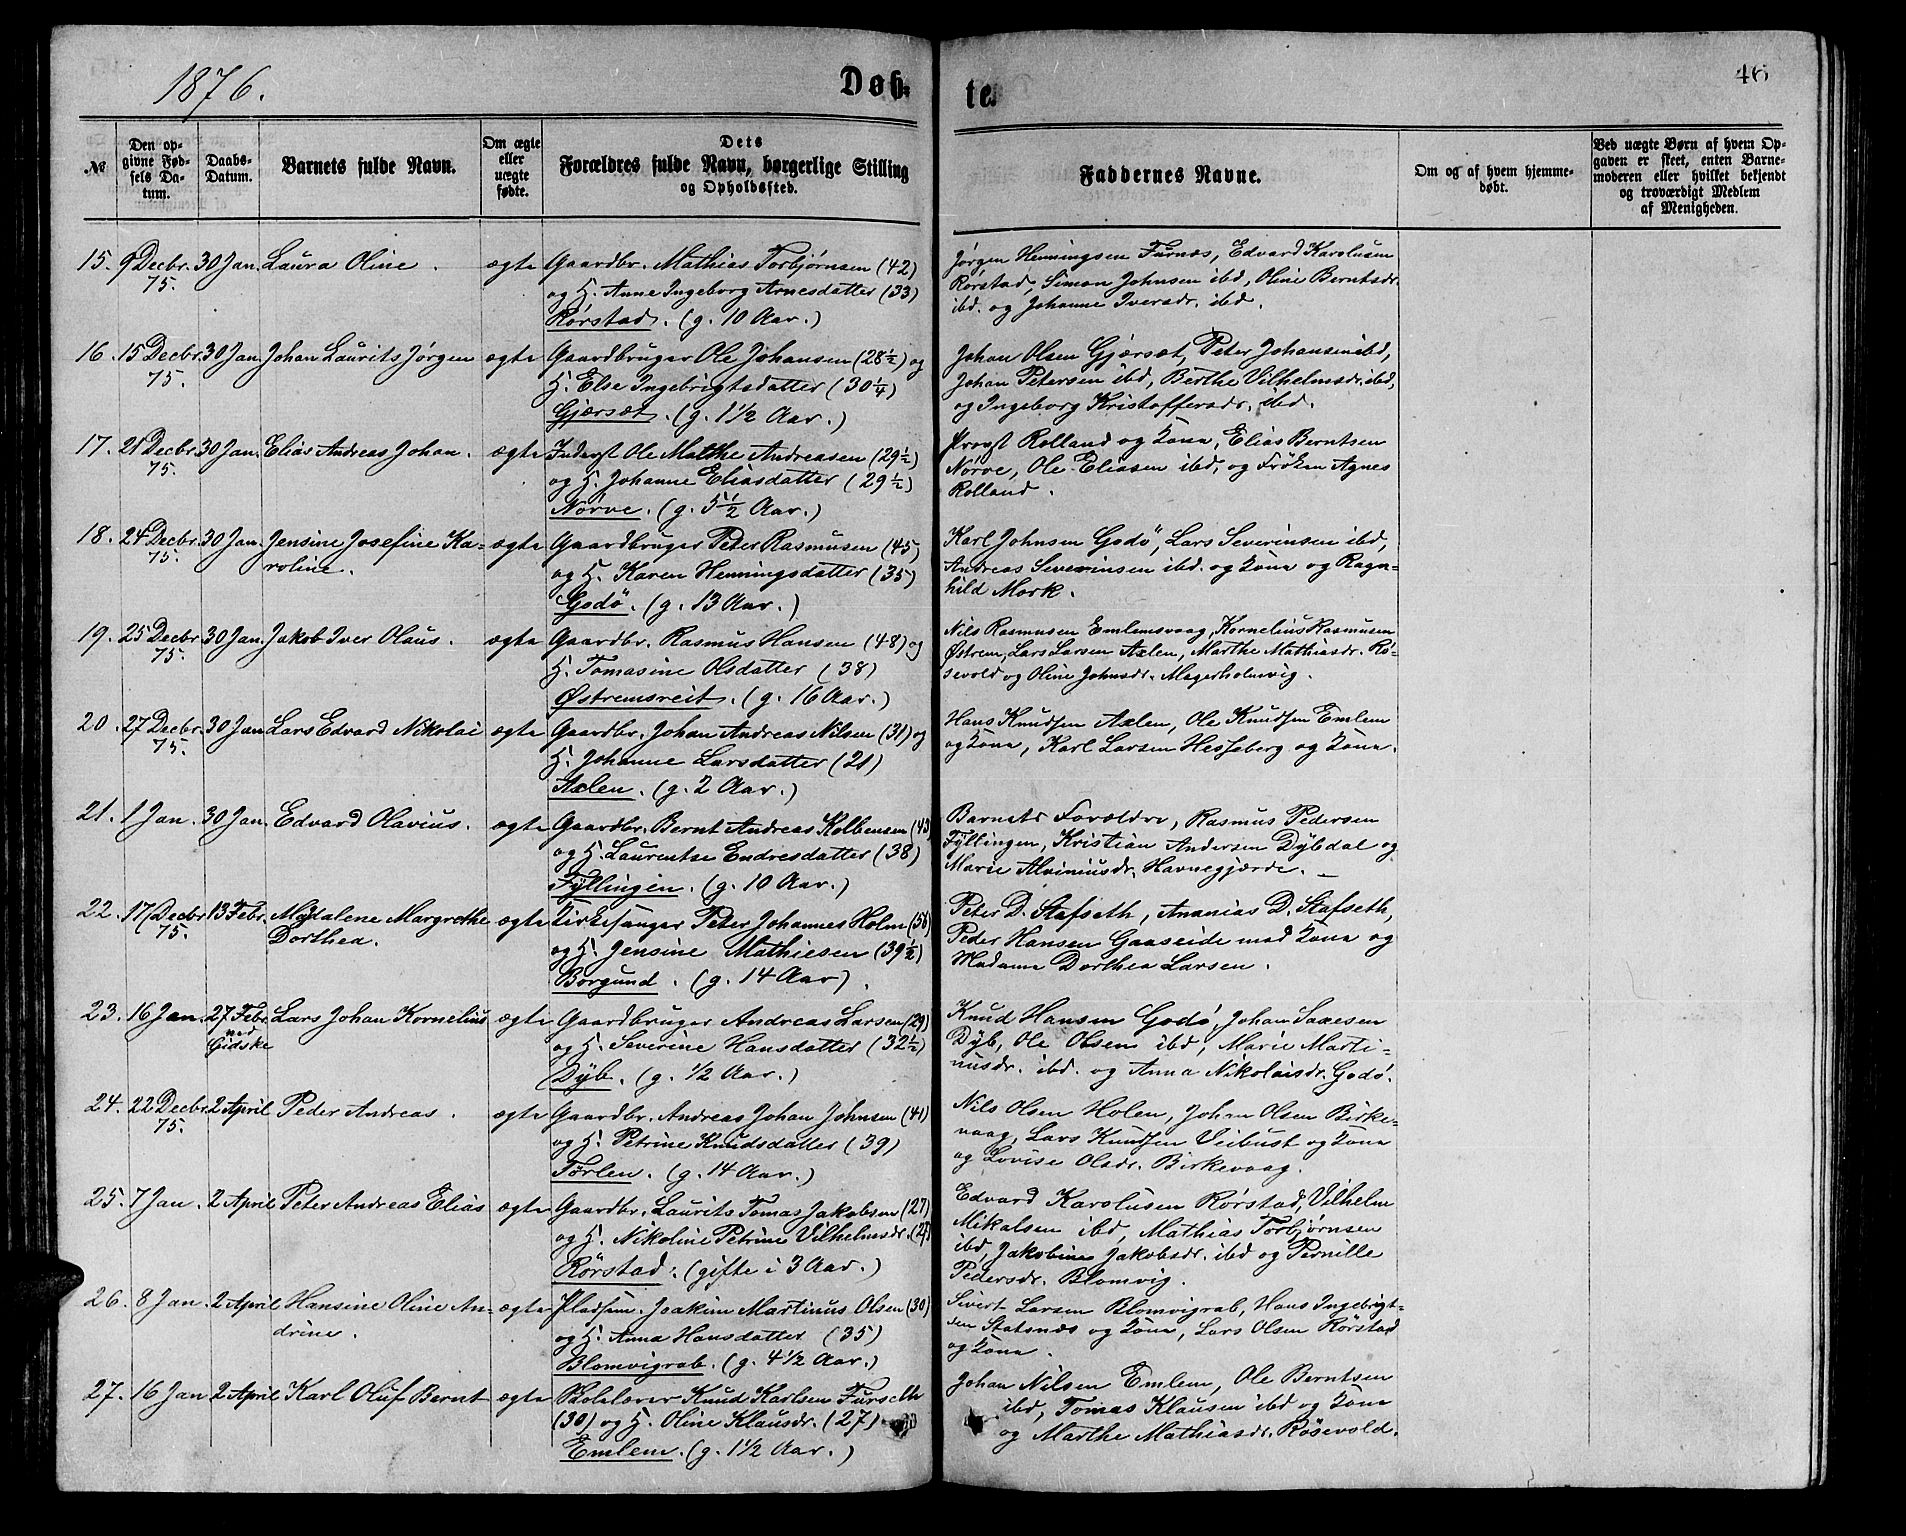 1876.
Døb-
te.
46
№
Den op-
givne Fød-
sels Da-
tum.
Daabs-
Datum.
Barnets fulde Navn.
Om ægte
eller
uægte
fødte.
Dets
Forældres fulde Navn, borgerlige Stilling
og Opholdssted.
Faddernes Navne.
Om og af hvem hjemme-
døbt.
Ved uægte Børn af hvem Op-
gaven er skeet, enten Barne-
moderen eller hvilket bekjendt
og troværdigt Medlem
af Menigheden.
15. 9 Decbr. 30 Jan. Laura Oline. ægte Gaardbr. Mathias Torbjørnsen (42)
75. og H. Anne Ingeborg Arnesdatter (33)
Rørstad. (g. 10 Aar.)
Jørgen Henningsen Furnæs, Edvard Karolusen
Rørstad, Simon Johnsen ibd, Oline Berntsdr.
ibd. og Johanne Iversdr. ibd.
16. 15 Decbr. 30 Jan. Johan Laurits Jørgen ægte Gaardbruger Ole Johansen (28½) og
75. H. Else Ingebrigtsdatter (30¼)
Gjærsæt. (g. 1½ Aar.)
Johan Olsen Gjærsæt, Peter Johansen ibd,
Johan Petersen ibd, Berthe Vilhelmsdr. ibd,
og Ingeborg Kristoffersdr. ibd.
17. 21 Decbr. 30 Jan. Elias Andreas Johan. ægte Inderst Ole Mathe Andreasen (29½)
75. og H. Johanne Eliasdatter (29½)
Nørve. (g. 5½ Aar.)
Provst Rolland og Kona, Elias Berntsen
Nørve, Ole Eliasen ibd, og Frøken Agnes
Rolland.
18. 24 Decbr. 30 Jan. Jensine Josefine Ka- ægte Gaardbruger Peter Rasmusen (45)
75. roline. og H. Karen Henningsdatter (35)
Godö. (g. 13 Aar.)
Karl Johnsen Godö, Lars Severinsen ibd,
Andreas Severinsen ibd. og Kona og Ragn-
hild Mork.
19. 25 Decbr. 30 Jan. Jakob Iver Olaus. ægte Gaardbr. Rasmus Hansen (48) og
75. H. Tomasine Olsdatter (38)
Østremsreit. (g. 16 Aar.)
Nils Rasmusen Emlemsvaag, Kornelius Rasmusen
Østrem, Lars Larsen Axlen, Marthe Mathiasdr. Rø-
sevold og Oline Johnsdr. Magerholmvig.
20. 27 Decbr. 30 Jan Lars Edvard Nikolai ægte Gaardbr. Johan Andreas Nilsen (31) og
75. H. Johanne Larsdatter (21)
Axlen. (g. 2 Aar.)
Hans Knudsen Axlen, Ole Knudsen Emlem
og Kona, Karl Larsen Hessaberg og Kona.
21. 1 Jan. 30 Jan. Edvard Olavius. ægte Gaardbr. Bernt Andreas Kolbensen (43)
og H. Laurentse Endresdatter (38)
Fyllingen. (g. 10 Aar.)
Barnets Forældre, Rasmus Pedersen
Fyllingen, Kristian Andersen Dybdal og
Marie Alvinusdr. Havnegjærde. –
22. 17 Decbr 13 Febr. Magdalene Margrethe ægte Kirkesanger Peter Johannes Holm (56)
75. Dorthea. og H. Jensine Mathiesen (39½)
Borgund. (g. 14 Aar).
Peter D. Stafseth, Ananias D. Stafseth,
Peder Hansen Gaaseide med Kona og
Madame Dorthea Larsen.
23. 16 Jan. 27 Febr Lars Johan Kornelius ægte Gaardbruger Andreas Larsen (29)
ved og H. Severine Hansdatter (32½)
Gidske Dyb. (g. ½ Aar.)
Knud Hansen Godö, Johan Saxesen
Dyb, Ole Olsen ibd, Marie Marti-
nusdr. ibd. og Anna Nikolaisdr. Godö.
24. 22 Decbr. 2 April Peder Andreas. ægte Gaardbr. Andreas Johan Johnsen (41)
75. og H. Petrine Knudsdatter (39)
Tørlen. (g. 14 Aar.)
Nils Olsen Holen, Johan Olsen Birke-
vaag, Lars Knudsen Veibust og Kona
og Lovise Olsdr. Birkevaag.
25. 7 Jan. 2 April Peter Andreas Elias ægte Gaardbr. Laurits Tomas Jakobsen (27)
og H. Nikoline Petrine Vilhelmsdr. (27)
Rørstad. (gifte i 3 Aar.)
Edvard Karolusen Rørstad, Vilhelm
Mikalsen ibd, Mathias Torbjørnsen
ibd, Jakobine Jakobsdr. ibd og Pernille
Pedersdr. Blomvig.
26. 8 Jan. 2 April Hansine Oline An- ægte Pladsem. Joakim Martinus Olsen (30)
drine. og H. Anna Hansdatter (35)
Blomvigrab. (g. 4½ Aar.)
Sivert Larsen Blomvigrab, Hans Ingebrigt-
sen Statsnæs og Kona, Lars Olsen Rørstad
og Kona.
27. 16 Jan 2 April Karl Oluf Bernt ægte Skolelærer Knud Karlsen Furseth
(30) og H. Oline Klausdr. (27)
Emlem. (g. 1½ Aar.)
Johan Nilsen Emlem, Ole Berntsen
ibd, Tomas Klausen ibd og Kona
og Marthe Mathiasdr. Røsevold.